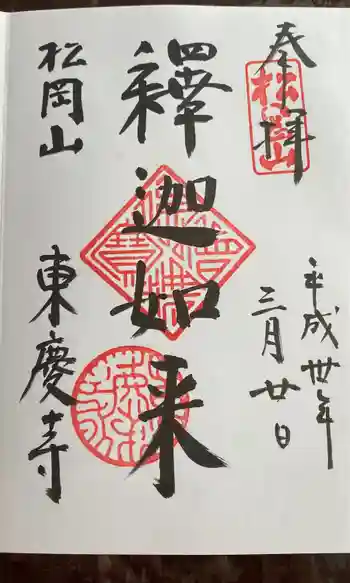 奉拝
松岡山
平成卅年
三月廿日
釋迦如来
松岡山
東慶寺